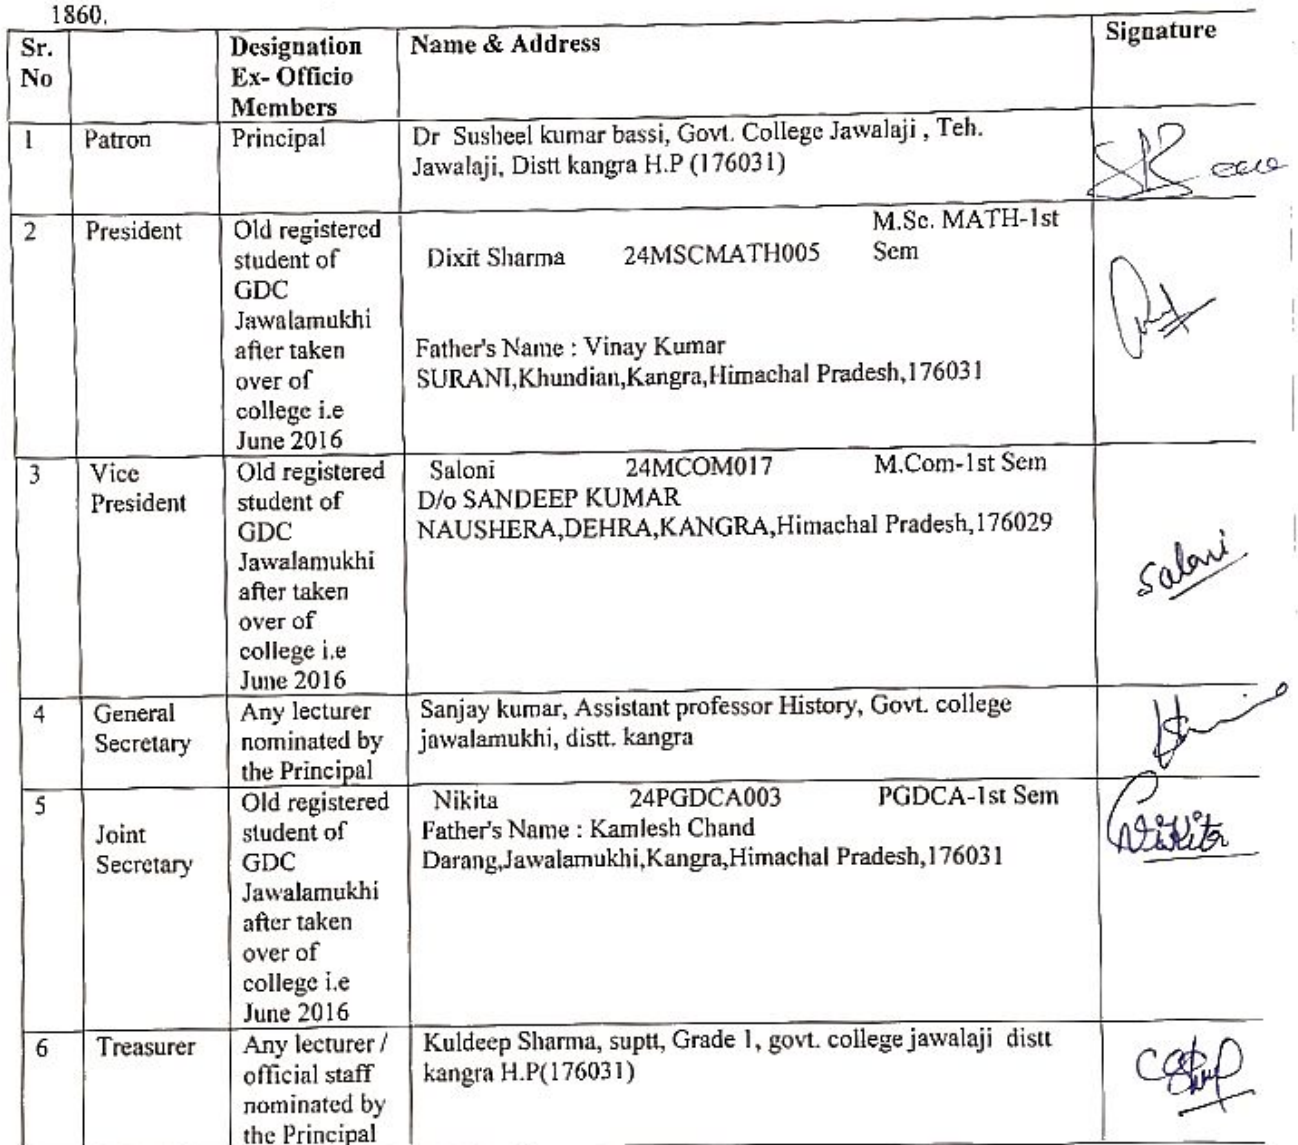 1860.
Sr. No
Designation Ex- Officio Members
Name & Address
Signature
1
Patron
Principal
Dr Susheel kumar bassi, Govt. College Jawalaji , Teh.
Jawalaji, Distt kangra H.P (176031)
2
President
Old registered
student of
GDC
Jawalamukhi
after taken
over of
college i.e
June 2016
Dixit Sharma 24MSCMATH005 M.Sc. MATH-1st Sem
Father's Name : Vinay Kumar
SURANI,Khundian,Kangra,Himachal Pradesh,176031
3
Vice
President
Old registered
student of
GDC
Jawalamukhi
after taken
over of
college i.e
June 2016
Saloni 24MCOM017 M.Com-1st Sem
D/o SANDEEP KUMAR
NAUSHERA,DEHRA,KANGRA,Himachal Pradesh,176029
Saloni
4
General
Secretary
Any lecturer
nominated by
the Principal
Sanjay kumar, Assistant professor History, Govt. college
jawalamukhi, distt. kangra
5
Joint
Secretary
Old registered
student of
GDC
Jawalamukhi
after taken
over of
college i.e
June 2016
Nikita 24PGDCA003 PGDCA-1st Sem
Father's Name : Kamlesh Chand
Darang,Jawalamukhi,Kangra,Himachal Pradesh,176031
Nikita
6
Treasurer
Any lecturer /
official staff
nominated by
the Principal
Kuldeep Sharma, suptt, Grade 1, govt. college jawalaji distt
kangra H.P(176031)